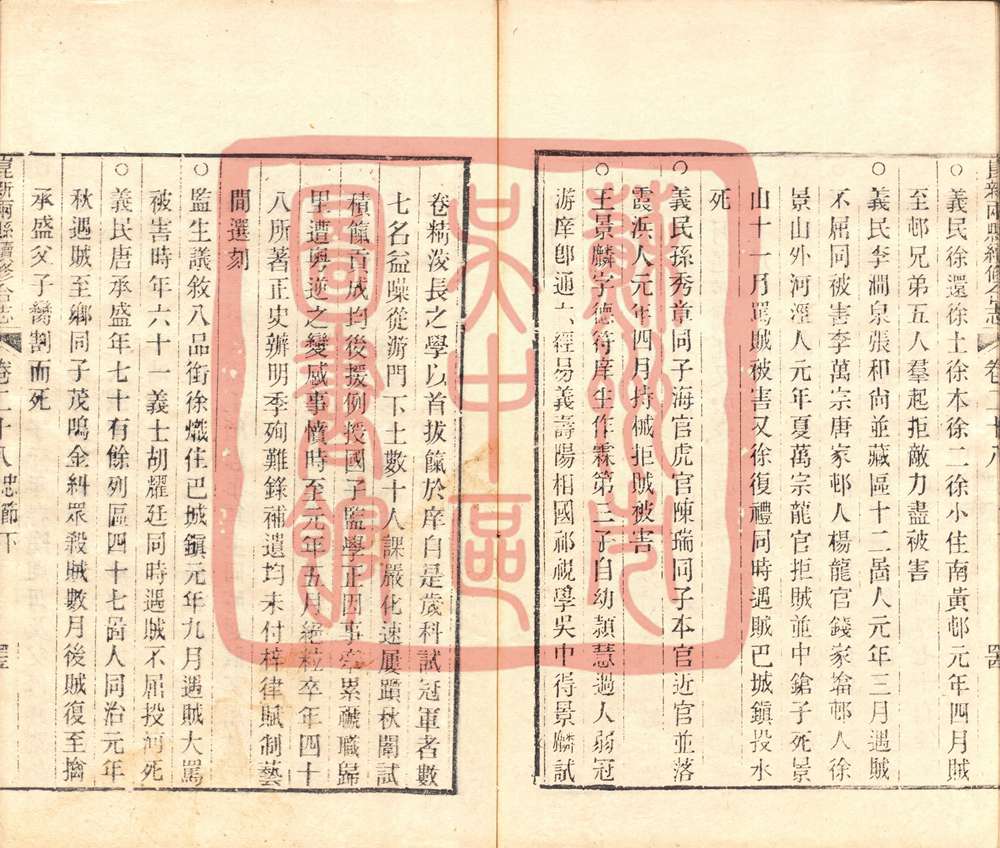 ○義民徐還徐土徐本徐二徐小住南黃邨元年四月賊
至邨兄弟五人羣起拒敵力盡被害
○義民李澗泉張和尙並藏區十二啚人元年三月遇賊
不屈同被害李萬宗唐家邨人楊龍官錢家㙮邨人徐
景山外河涇人元年夏萬宗龍官拒賊並中鎗子死景
山十一月罵賊被害又徐復禮同時遇賊巴城鎭投水
死
○義民孫秀章同子海官虎官陳瑞同子本官近官並落
霞浜人元年四月持械拒賊被害
○王景麟字德符庠生作霖第三子自幼頴慧過人弱冠
游庠卽通六經易義壽陽相國祁視學吳中得景麟試
卷精湥長之學以首拔餼於庠自是歲科試冠軍者數
七名益噪從游門下士數十人課嚴化速屢躓秋闈試
積餼貢成均後援例授國子監學正因事牽累虤職歸
里遭粤逆之變感事憤時至元年五月絕粒卒年四十
八所著正史辨明季殉難錄補遺均未付梓律賦制藝
間選刻
○監生議敘八品銜徐熾住巴城鎭元年九月遇賊大罵
被害時年六十一義士胡耀廷同時遇賊不屈投河死
○義民唐承盛年七十有餘列區四十七啚人同治元年
秋遇賊至鄉同子茂鳴金糾眾殺賊數月後賊復至擒
承盛父子臠割而死
崑新兩縣續修合志 卷二十八 忠節下
蘇州市吳中區圖書館